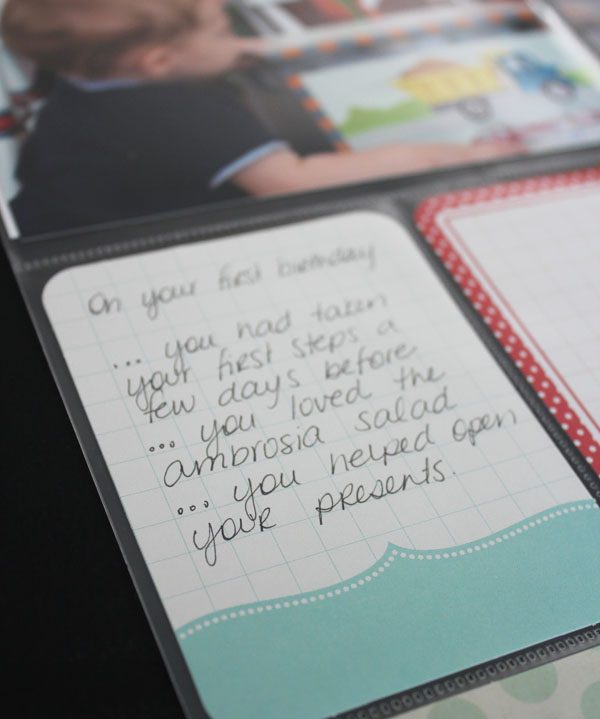 On your first birthday
... you had taken
your first steps a
few days before
... you loved the
ambrosia salad
... you helped open
your presents.